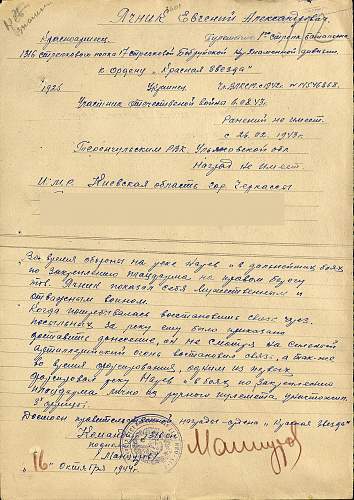 Ячник Евгений Александрович
Красноармеец
1го Стрелк. батальона
1316 стрелкового полка 17 стрелковой Бобруйской Кр/знаменной дивизии
к Ордену „Красная Звезда"
1926 Украинец Чл. ВЛКСМ с 1942г. №
Участник отечественной войны 6.08.43г.
Ранений не имеет.
с 26.02.1943г.
Теренгульским РВК Ульяновской обл
Наград не имеет.
Киевская область гор. Черкассы
За время обороны на реке Нарев и в дальнейших боях
по закреплению плацдарма на правом берегу
тов. Ячник показал себя мужественным и
отважным воином.
Когда потребовалось восстановить связь через
посыльных за реку ему было приказано
доставить донесение, он не смотря на сильный
артиллерийский огонь восстановил связь, а так-же
во время форсирования, одним из первых
форсировал реку Нарев и в боях по закреплению
плацдарма лично из ручного пулемета уничтожил
3х фрицев.
Достоен правительственной награды-ордена „Красная Звезда"
Командир 1316 сп
подполк.
/Мантуров/
Мантуров
"16" Октября 1944г.